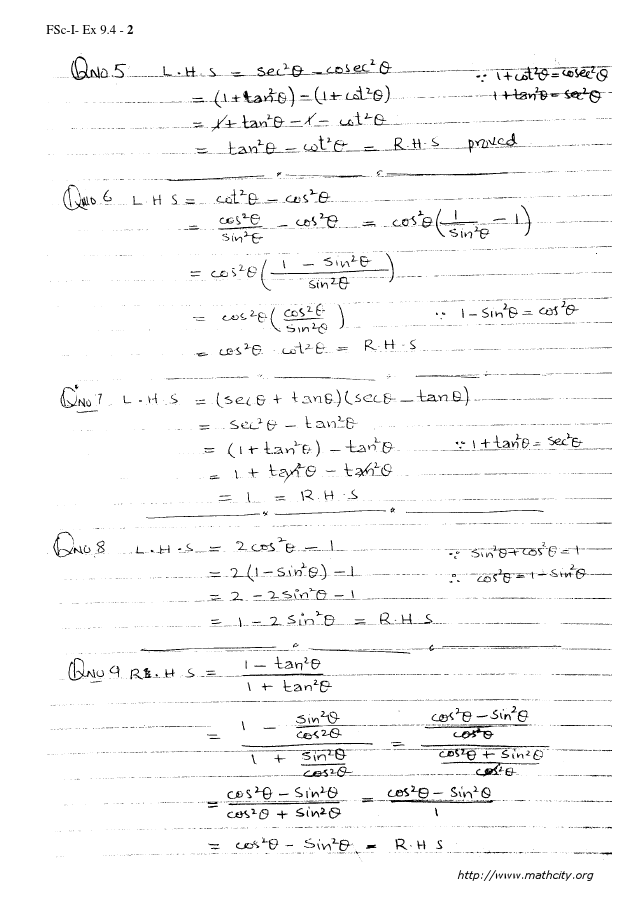 FSc-I- Ex 9.4 - 2
QNO.5 L.H.S = sec²θ - cosec²θ ∵ 1+cot²θ=cosec²θ
= (1+tan²θ)-(1+cot²θ) 1+tan²θ=sec²θ
= 1+tan²θ-1-cot²θ
= tan²θ-cot²θ = R.H.S proved
QNO.6 L H S = cot²θ - cos²θ
= cos²θ/sin²θ - cos²θ = cos²θ(1/sin²θ - 1)
= cos²θ(1 - sin²θ/sin²θ)
= cos²θ(cos²θ/sin²θ) ∵ 1-sin²θ = cos²θ
= cos²θ cot²θ = R.H.S
QNO7 L.H.S = (secθ + tanθ)(secθ - tanθ)
= sec²θ - tan²θ
= (1+tan²θ) - tan²θ ∵ 1+tan²θ = sec²θ
= 1 + tan²θ - tan²θ
= 1 = R.H.S
QNO8 L.H.S = 2cos²θ - 1 ∵ sin²θ+cos²θ=1
= 2(1-sin²θ)-1 ∴ cos²θ=1-sin²θ
= 2-2sin²θ-1
= 1-2sin²θ = R.H.S
QNO9 R.H.S = 1-tan²θ/1+tan²θ
= 1 - sin²θ/cos²θ / 1 + sin²θ/cos²θ = cos²θ-sin²θ/cos²θ / cos²θ+sin²θ/cos²θ
= cos²θ-sin²θ/cos²θ+sin²θ = cos²θ-sin²θ/1
= cos²θ-sin²θ = R.H.S
http://www.mathcity.org